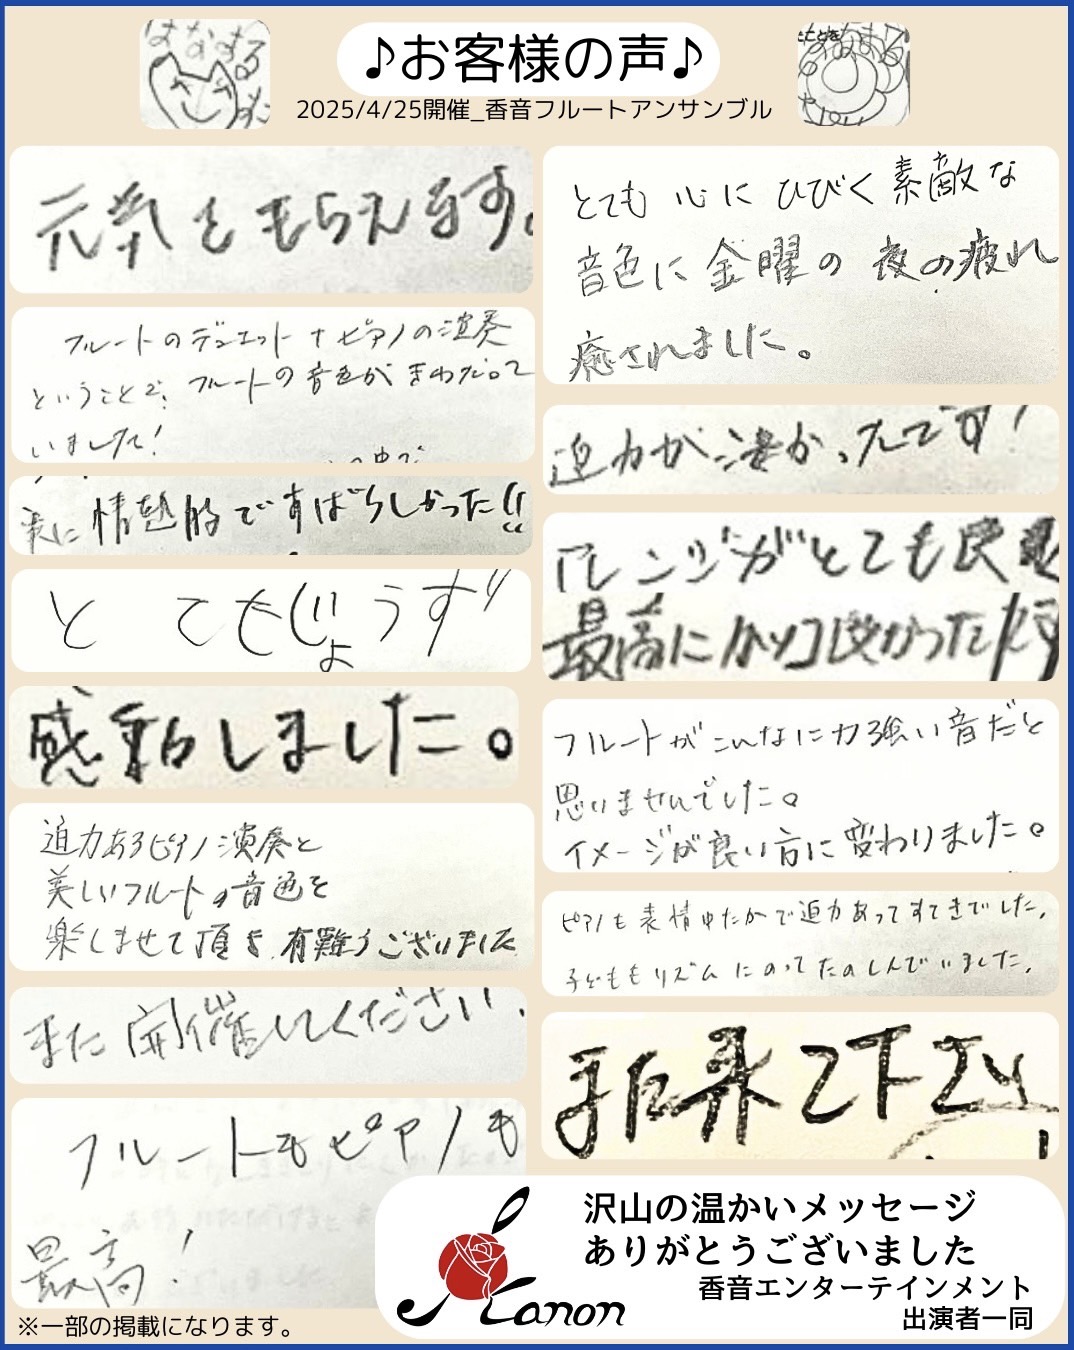 ♪お客様の声♪
2025/4/25開催_香音フルートアンサンブル
はなまる
はなまる
元気をもらえます。
フルートのデュエット+ピアノの演奏
ということで、フルートの音色がきわだって
いました!
実に情熱的ですばらしかった!!
とてもじょうず
感動しました。
迫力あるピアノ演奏と
美しいフルートの音色を
楽しませて頂き、有難うございました
また開催してください、
フルートもピアノも
最高!
とても心にひびく素敵な
音色に金曜の夜の疲れ
癒されました。
迫力が凄かったです!
アレンジがとても良
最高にカッコ良かった
フルートがこんなに力強い音だと
思いませんでした。
イメージが良い方に変わりました。
ピアノも表情ゆたかで迫力あってすてきでした。
子どももリズムにのってたのしんでいました。
また来て下さい
沢山の温かいメッセージ
ありがとうございました
香音エンターテインメント
出演者一同
Kanon
※一部の掲載になります。